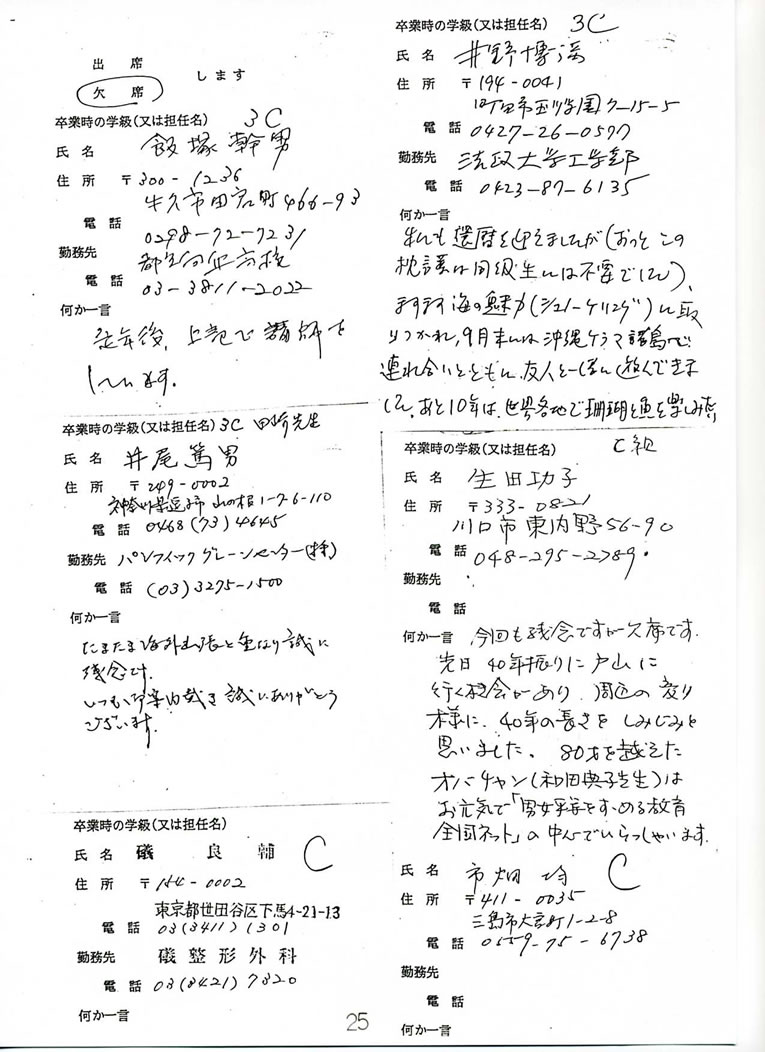 出 席
欠 席
します
卒業時の学級(又は担任名) 3C
氏 名 飯塚幹男
住 所 〒300-1236
牛久市田宮町466-93
電 話 0298-72-7231
勤務先 都立向丘高校
電 話 03-3811-2022
何か一言
定年後、上記で講師を
しています。
卒業時の学級(又は担任名) 3C 田崎先生
氏 名 井尾篤男
住 所 〒249-0002
神奈川県逗子市山の根1-7-6-110
電 話 0468(73)4645
勤務先 パシフィックグレーンセンター(株)
電 話 (03)3275-1500
何か一言
たまたま海外出張と重なり誠に
残念です。
いつも御案内戴き誠にありがとう
ございます。
卒業時の学級(又は担任名)
氏 名 礒 良 輔 C
住 所 〒154-0002
東京都世田谷区下馬4-21-13
電 話 03(3411)1301
勤務先 礒整形外科
電 話 03(3421)7320
何か一言
卒業時の学級(又は担任名) 3C
氏 名 井野博
住 所 〒194-0041
町田市玉川学園7-15-5
電 話 0427-26-0577
勤務先 法政大学工学部
電 話 0423-87-6135
何か一言
私も還暦を迎えましたが(おっと この
枕詞は同級生には不要でした)、
海の魅力(シュノーケリング)に取
りつかれ、9月末には沖縄ケラマ諸島で
連れ合いとともに、友人と一緒に遊んできま
した。あと10年は、世界各地で珊瑚と魚を楽しみ
卒業時の学級(又は担任名) C組
氏 名 生田功子
住 所 〒333-0821
川口市東内野56-90
電 話 048-295-2789
勤務先
電 話
何か一言 今回も残念ですが欠席です。
先日 40年振りに戸山に
行く機会があり、周辺の変り
様に、40年の長さを しみじみと
思いました。 80才を越えた
オバチャン(和田典子先生)は
お元気で「男女平等をすゝめる教育
全国ネット」の中心でいらっしゃいます。
氏 名 市畑 均 C
住 所 〒411-0035
三島市大宮町1-2-8
電 話 0559-75-6738
勤務先
電 話
何か一言
25